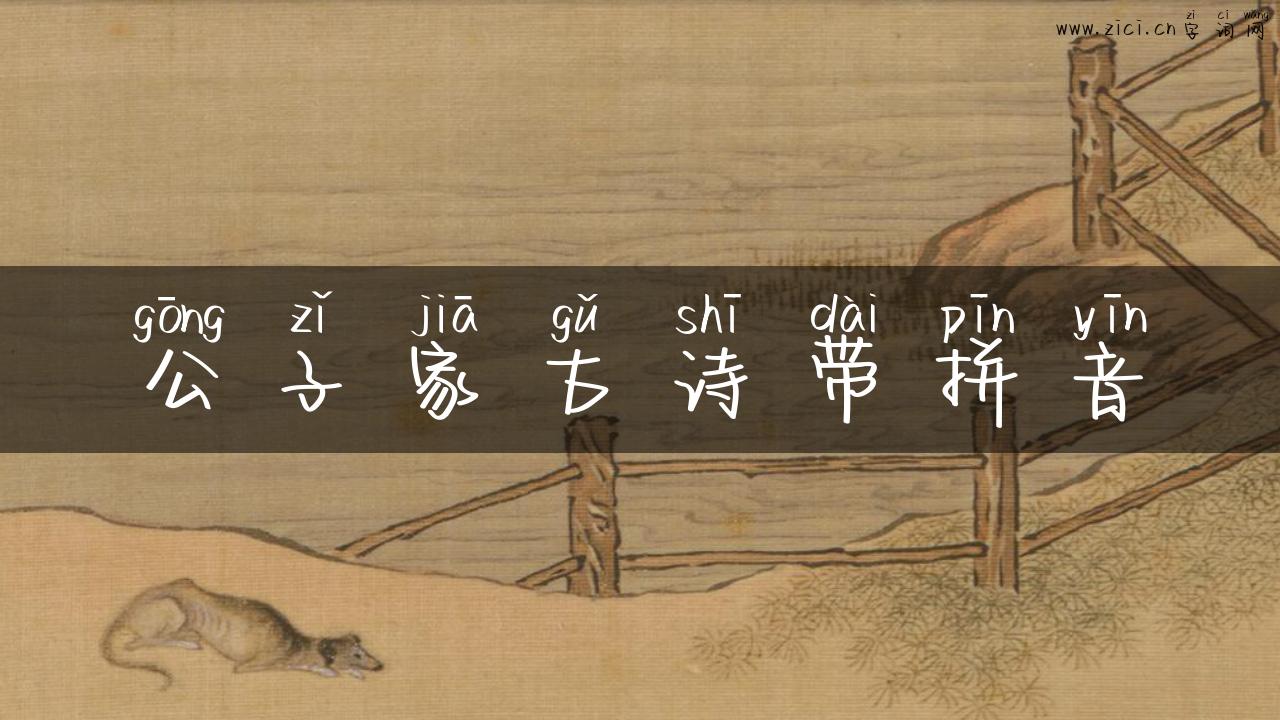 zì cí wang
www.zici.cn 字词网
gōng zǐ jiā gǔ shī dài pīn yīn
公子家古诗带拼音